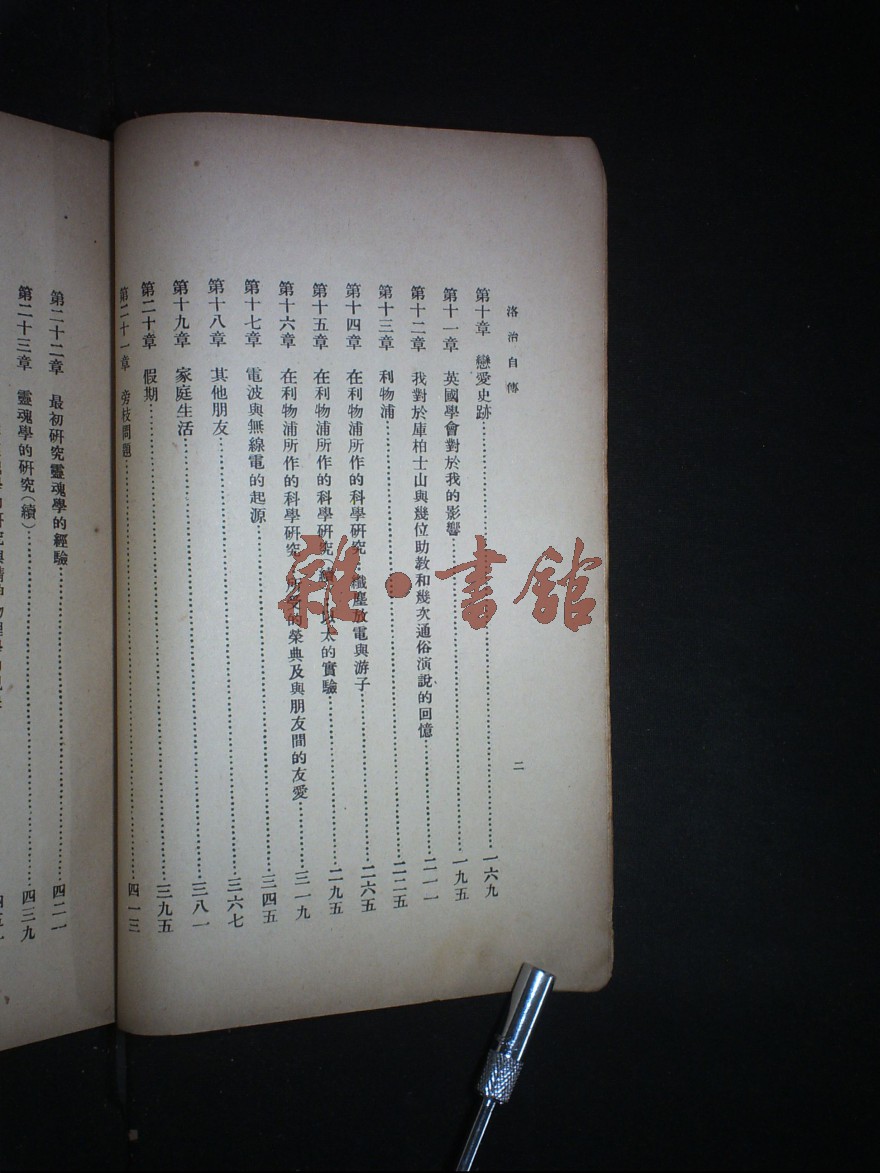 洛治自傳
二
第十章　戀愛史跡……一六九
第十一章　英國學會對於我的影響……一九五
第十二章　我對於庫柏士山與幾位助教和幾次通俗演說的回憶……二一一
第十三章　利物浦……二二五
第十四章　在利物浦所作的科學硏究　纖塵放電與游子……二六五
第十五章　在利物浦所作的科學硏究　以太的實驗……二九五
第十六章　在利物浦所作的科學硏究　所受的榮典及與朋友間的友愛……三一九
第十七章　電波與無線電的起源……三四五
第十八章　其他朋友……三六七
第十九章　家庭生活……三八一
第二十章　假期……三九五
第二十一章　旁枝問題……四一三
第二十二章　最初硏究靈魂學的經驗……四二一
第二十三章　靈魂學的硏究(續)……四三九
雜·書館